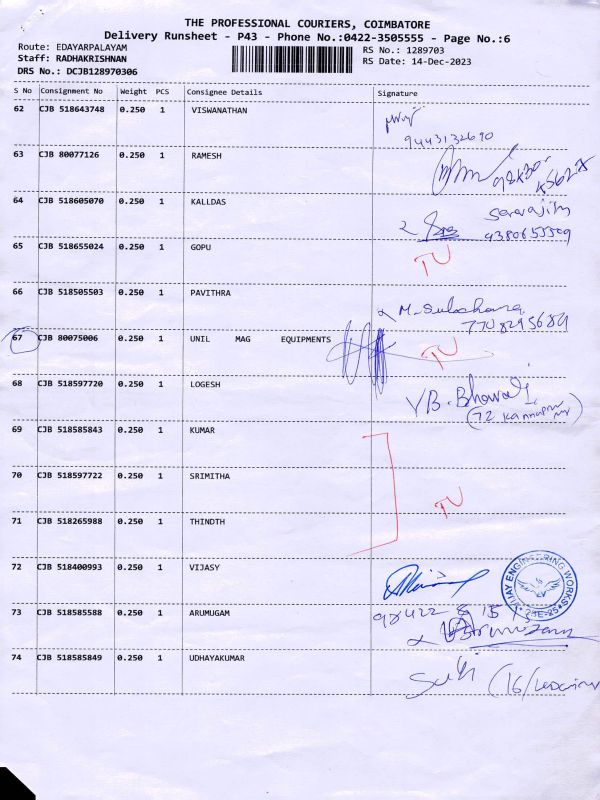 THE PROFESSIONAL COURIERS, COIMBATORE
Delivery Runsheet - P43 - Phone No.:0422-3505555 - Page No.:6
Route: EDAYARPALAYAM RS No.: 1289703
Staff: RADHAKRISHNAN RS Date: 14-Dec-2023
DRS No.: DCJB128970306
S No Consignment No Weight PCS Consignee Details Signature
62 CJB 518643748 0.250 1 VISWANATHAN
9443132690
63 CJB 80077126 0.250 1 RAMESH
64 CJB 518605070 0.250 1 KALLDAS
65 CJB 518655024 0.250 1 GOPU TU
66 CJB 518505503 0.250 1 PAVITHRA
67 CJB 80075006 0.250 1 UNIL MAG EQUIPMENTS TU
68 CJB 518597720 0.250 1 LOGESH
69 CJB 518585843 0.250 1 KUMAR
70 CJB 518597722 0.250 1 SRIMITHA TU
71 CJB 518265988 0.250 1 THINDTH
72 CJB 518400993 0.250 1 VIJASY
VIJAY ENGINEERING WORKS
73 CJB 518585588 0.250 1 ARUMUGAM
74 CJB 518585849 0.250 1 UDHAYAKUMAR